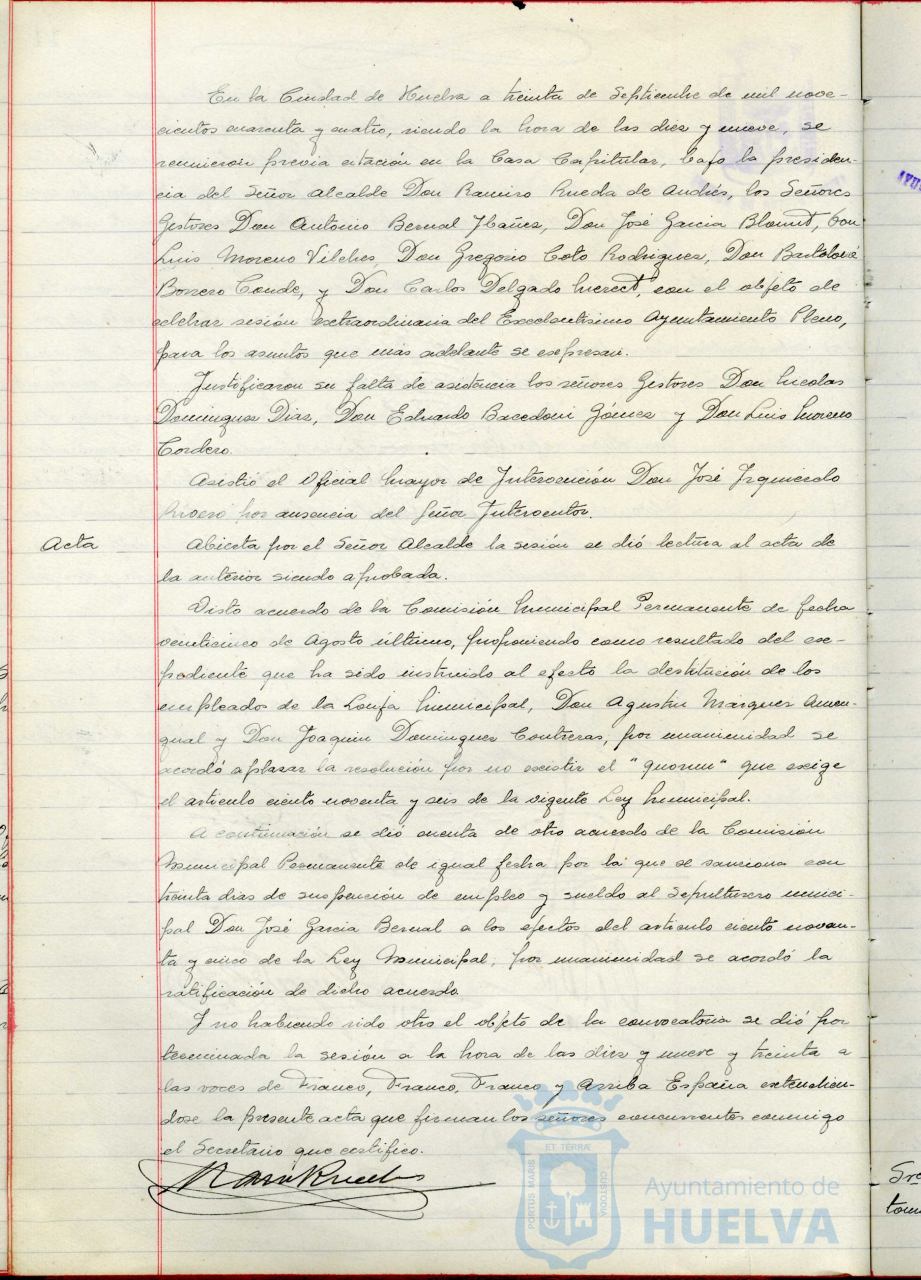 En la Ciudad de Huelva a treinta de Septiembre de mil nove-
cientos cuarenta y cuatro, siendo la hora de las diez y nueve, se
reunieron previa citación en la Casa Capitular, bajo la presiden-
cia del Señor Alcalde Don Ramiro Rueda de Andrés, los Señores
Gestores Don Antonio Bernal Ibáñez, Don José Garcia Don
Luis Moreno Vilches, Don Gregorio Coto Rodriguez, Don Bartolomé
Borrero Conde, y Don Carlos Delgado con el objeto de
celebrar sesión extraordinaria del Excelentisimo Ayuntamiento Pleno,
para los asuntos que mas adelante se expresan.
Justificaron su falta de asistencia los señores Gestores Don Nicolas
Dominguez Diaz, Don Eduardo Gómez y Don Luis Moreno
Cordero.
Asistió el Oficial Mayor de Intervención Don José Izquierdo
por ausencia del Señor Interventor.
Acta
Abierta por el Señor Alcalde la sesión se dió lectura al acta de
la anterior siendo aprobada.
Visto acuerdo de la Comisión Municipal Permanente de fecha
veinticinco de Agosto último, proponiendo como resultado del ex-
pediente que ha sido instruido al efecto la destitución de los
empleados de la Lonja Municipal, Don Agustin Márquez Amen-
gual y Don Joaquin Dominguez Contreras, por unanimidad se
acordó aplazar la resolución por no existir el "quorum" que exige
el articulo ciento noventa y seis de la vigente Ley Municipal.
A continuación se dió cuenta de otro acuerdo de la Comisión
Municipal Permanente de igual fecha por la que se sanciona con
treinta dias de suspención de empleo y sueldo al Sepulturero munici-
pal Don José Garcia Bernal a los efectos del articulo ciento noven-
ta y cinco de la Ley Municipal, por unanimidad se acordó la
ratificación de dicho acuerdo
Y no habiendo sido otro el objeto de la convocatoria se dió por
terminada la sesión a la hora de las diez y nueve y treinta a
las voces de Franco, Franco, Franco y Arriba España extendien-
dose la presente acta que firman los señores concurrentes conmigo
el Secretario que certifico.
PORTUS MARIS
ET TERRÆ
CUSTODIA
Ayuntamiento de
HUELVA